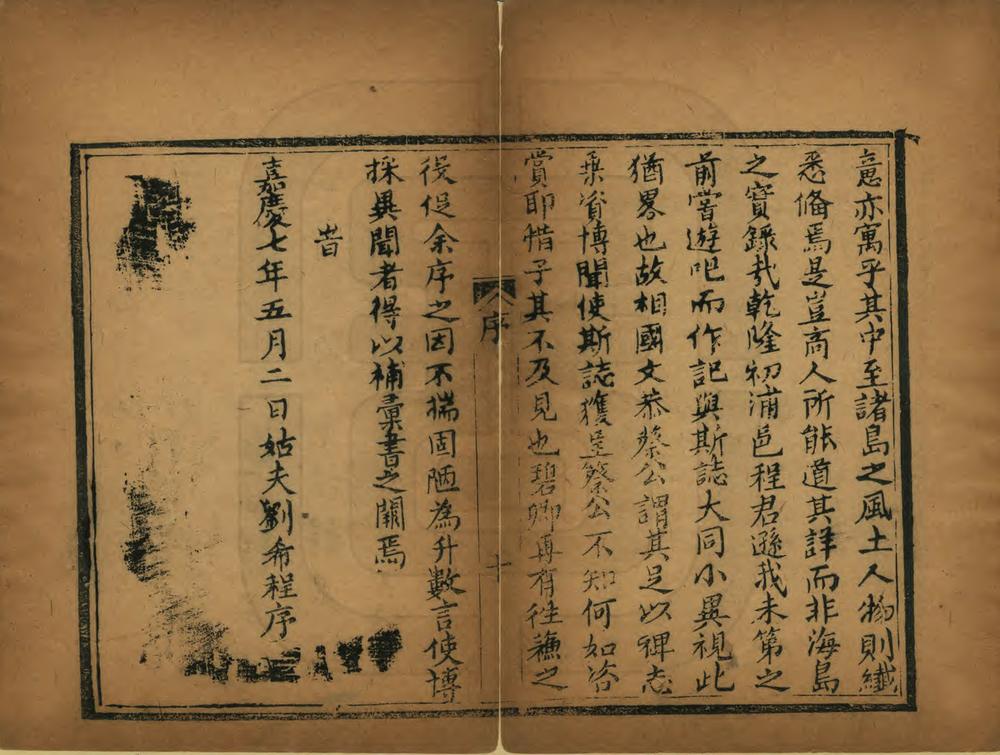 意亦寓乎其中至諸島之風土人物則纖
悉備焉是豈高人所能道其詳而非海島
之實錄哉乾隆初浦邑程君遜我未第之
前嘗遊吧而作記與斯誌大同小異視此
猶畧也故相國文恭蔡公謂其足以裨志
乗資博聞使斯誌獲呈蔡公不知何如咨
賞耶惜乎其不及見也碧卿再有徃蘓之
役促余序之因不揣固陋為弁數言使博
採異聞者得以補彙書之闕焉
旹
嘉慶七年五月二日姑夫劉希程序
序
十